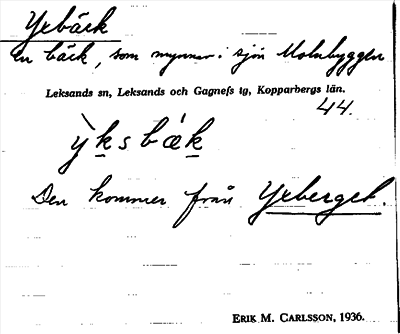 Yxbäck
en bäck, som mynnar i sjön Molnbyggen
Leksands sn, Leksands och Gagnefs tg, Kopparbergs län.
44.
ỳksbǽk
Den kommer från Yxberget.
ERIK M. CARLSSON, 1936.